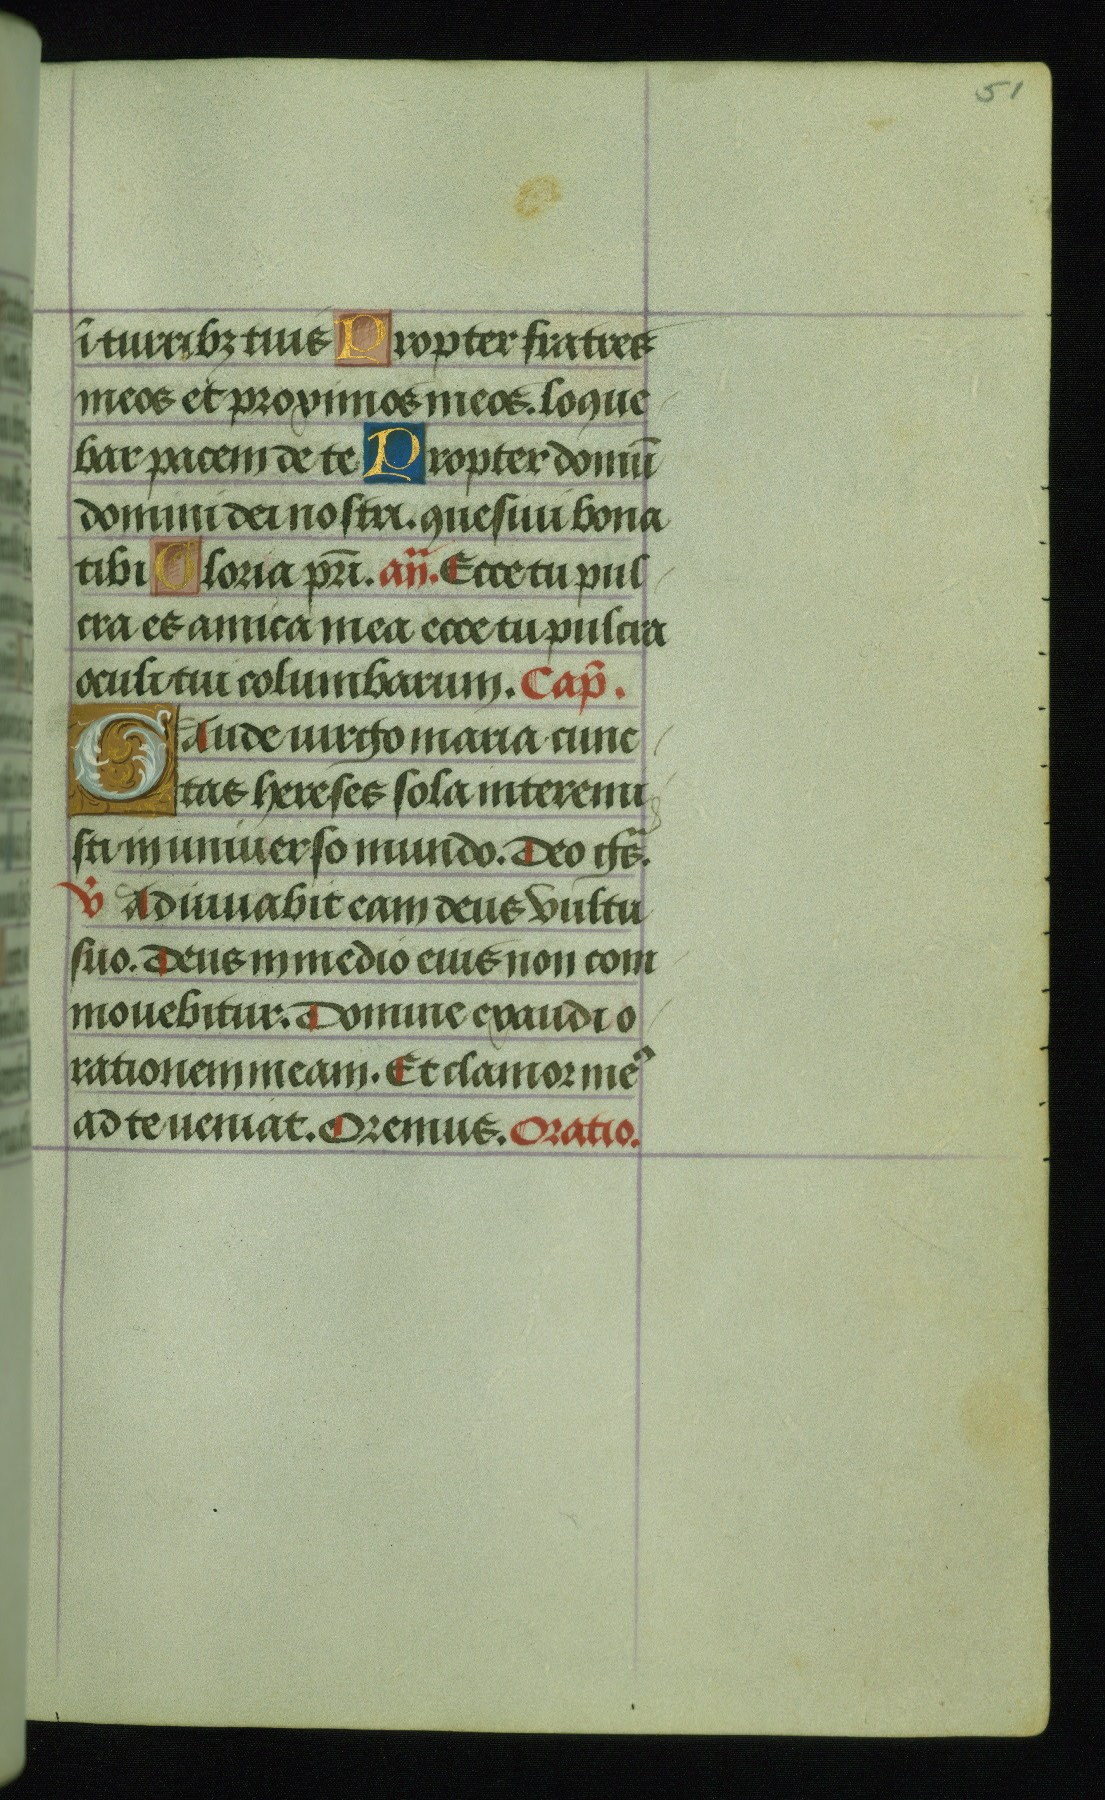 51
ī turribꝫ tuis Propter fratres
meos et proximos meos. loque
bar pacem de te Propter domū
domini dei nostri. quesiui bona
tibi Gloria pr̄i. an̄. Ecce tu pul
cra es amica mea ecce tu pulcra
oculi tui columbarum. Cap̄.
Gaude uirgo maria cunc
tas hereses sola interemi
sti in uniuerso mundo. Deo gr̄s.
V̄ Adiuuabit eam deus vultu
suo. Deus in medio eius non com
mouebitur. Domine exaudi o
rationem meam. Et clamor meꝰ
ad te ueniat. Oremus. Oratio.